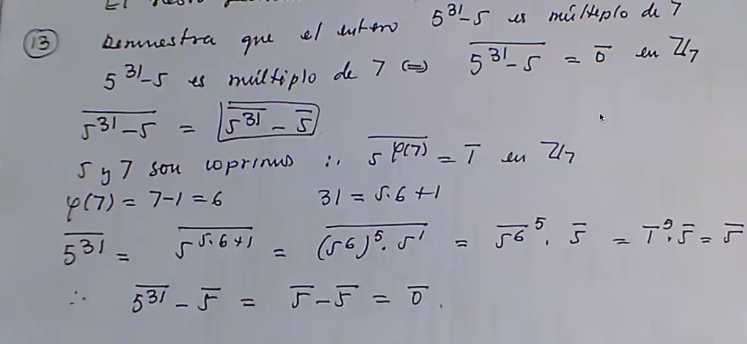 El resto
13 Demuestra que el entero 5^31-5 es múltiplo de 7
5^31-5 es múltiplo de 7 ⇔ \overline{5^31-5} = \overline{0} en Z_7
\overline{5^31-5} = \overline{5^31} - \overline{5}
5 y 7 son coprimos ∴ \overline{5^φ(7)} = \overline{1} en Z_7
φ(7) = 7-1 = 6 31 = 5·6+1
\overline{5^31} = \overline{5^5·6+1} = \overline{(5^6)^5·5^1} = \overline{5^6}^5 · \overline{5} = \overline{1}^5·\overline{5} = \overline{5}
∴ \overline{5^31} - \overline{5} = \overline{5} - \overline{5} = \overline{0}.